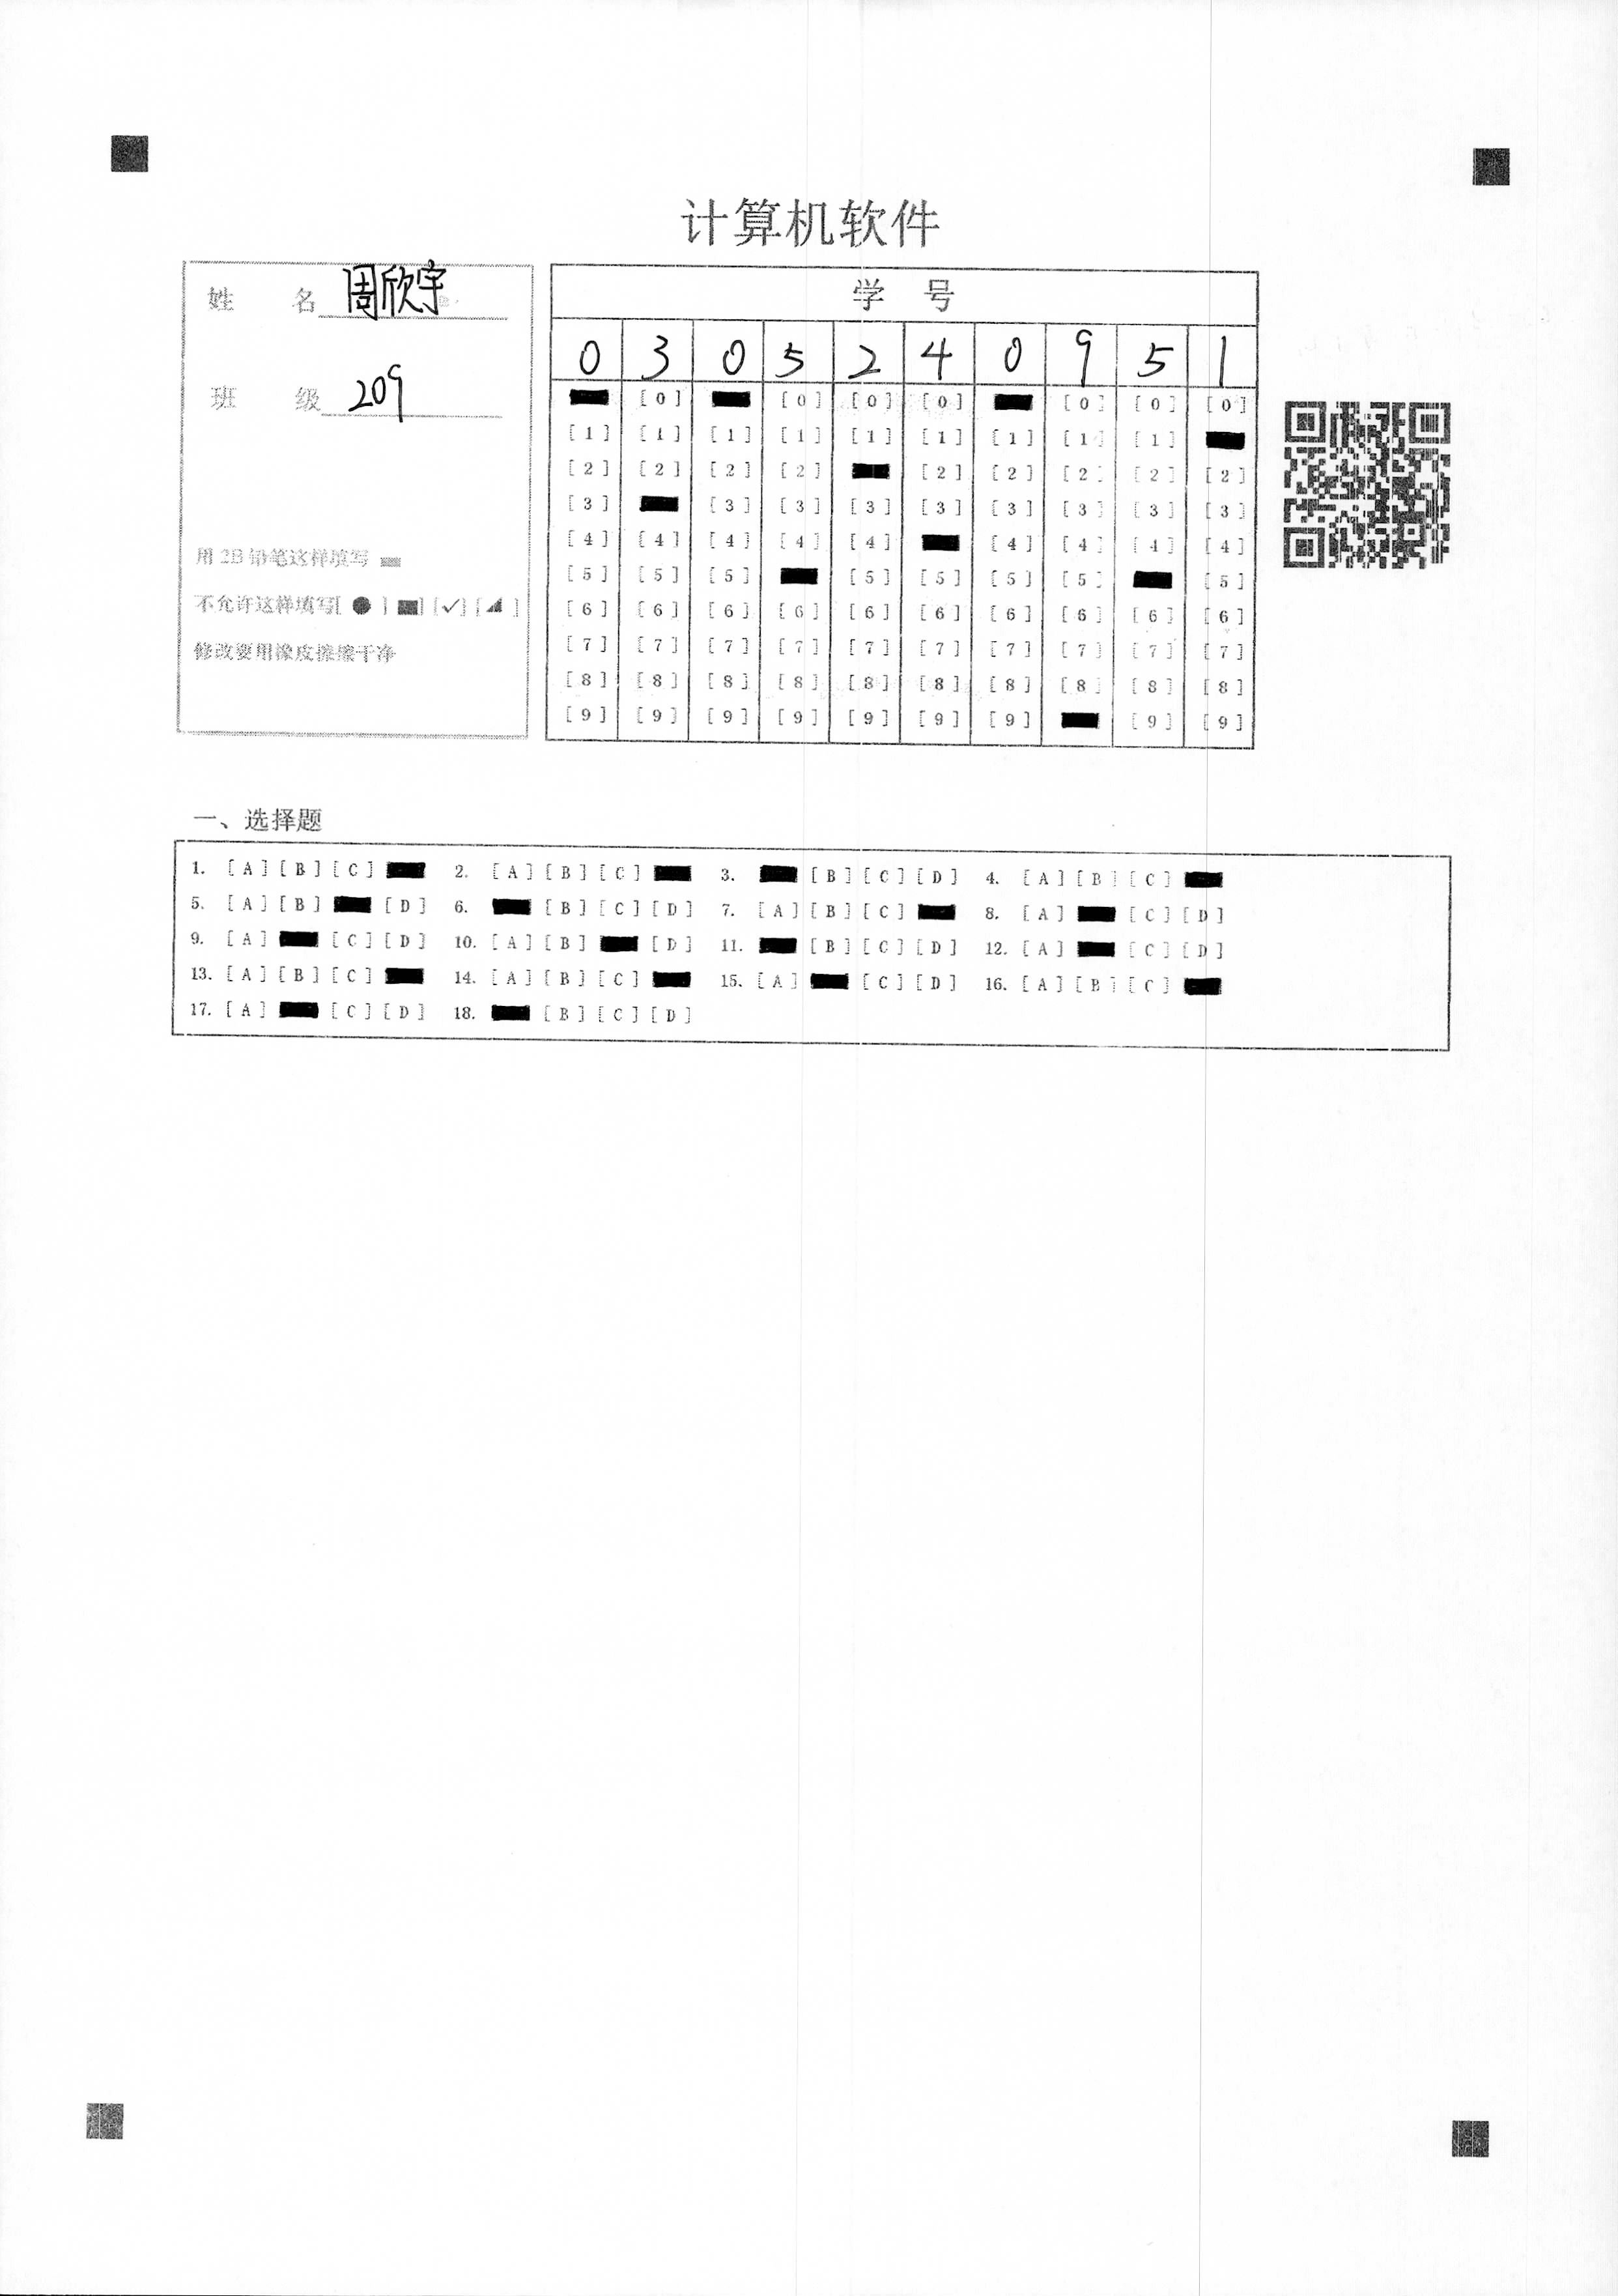 计算机软件
姓 名 周欣宇
班 级 209
用2B铅笔这样填写
不允许这样填写[ ● ] [■] [✓] [◢ ]
修改要用橡皮擦擦干净
学 号
0 3 0 5 2 4 0 9 5 1
[0] [0] [0] [0] [0] [0] [0]
[1] [1] [1] [1] [1] [1] [1] [1] [1]
[2] [2] [2] [2] [2] [2] [2] [2] [2]
[3] [3] [3] [3] [3] [3] [3] [3] [3]
[4] [4] [4] [4] [4] [4] [4] [4] [4]
[5] [5] [5] [5] [5] [5] [5] [5]
[6] [6] [6] [6] [6] [6] [6] [6] [6] [6]
[7] [7] [7] [7] [7] [7] [7] [7] [7] [7]
[8] [8] [8] [8] [8] [8] [8] [8] [8] [8]
[9] [9] [9] [9] [9] [9] [9] [9] [9]
一、选择题
1. [A] [B] [C] 2. [A] [B] [C] 3. [B] [C] [D] 4. [A] [B] [C]
5. [A] [B] [D] 6. [B] [C] [D] 7. [A] [B] [C] 8. [A] [C] [D]
9. [A] [C] [D] 10. [A] [B] [D] 11. [B] [C] [D] 12. [A] [C] [D]
13. [A] [B] [C] 14. [A] [B] [C] 15. [A] [C] [D] 16. [A] [B] [C]
17. [A] [C] [D] 18. [B] [C] [D]